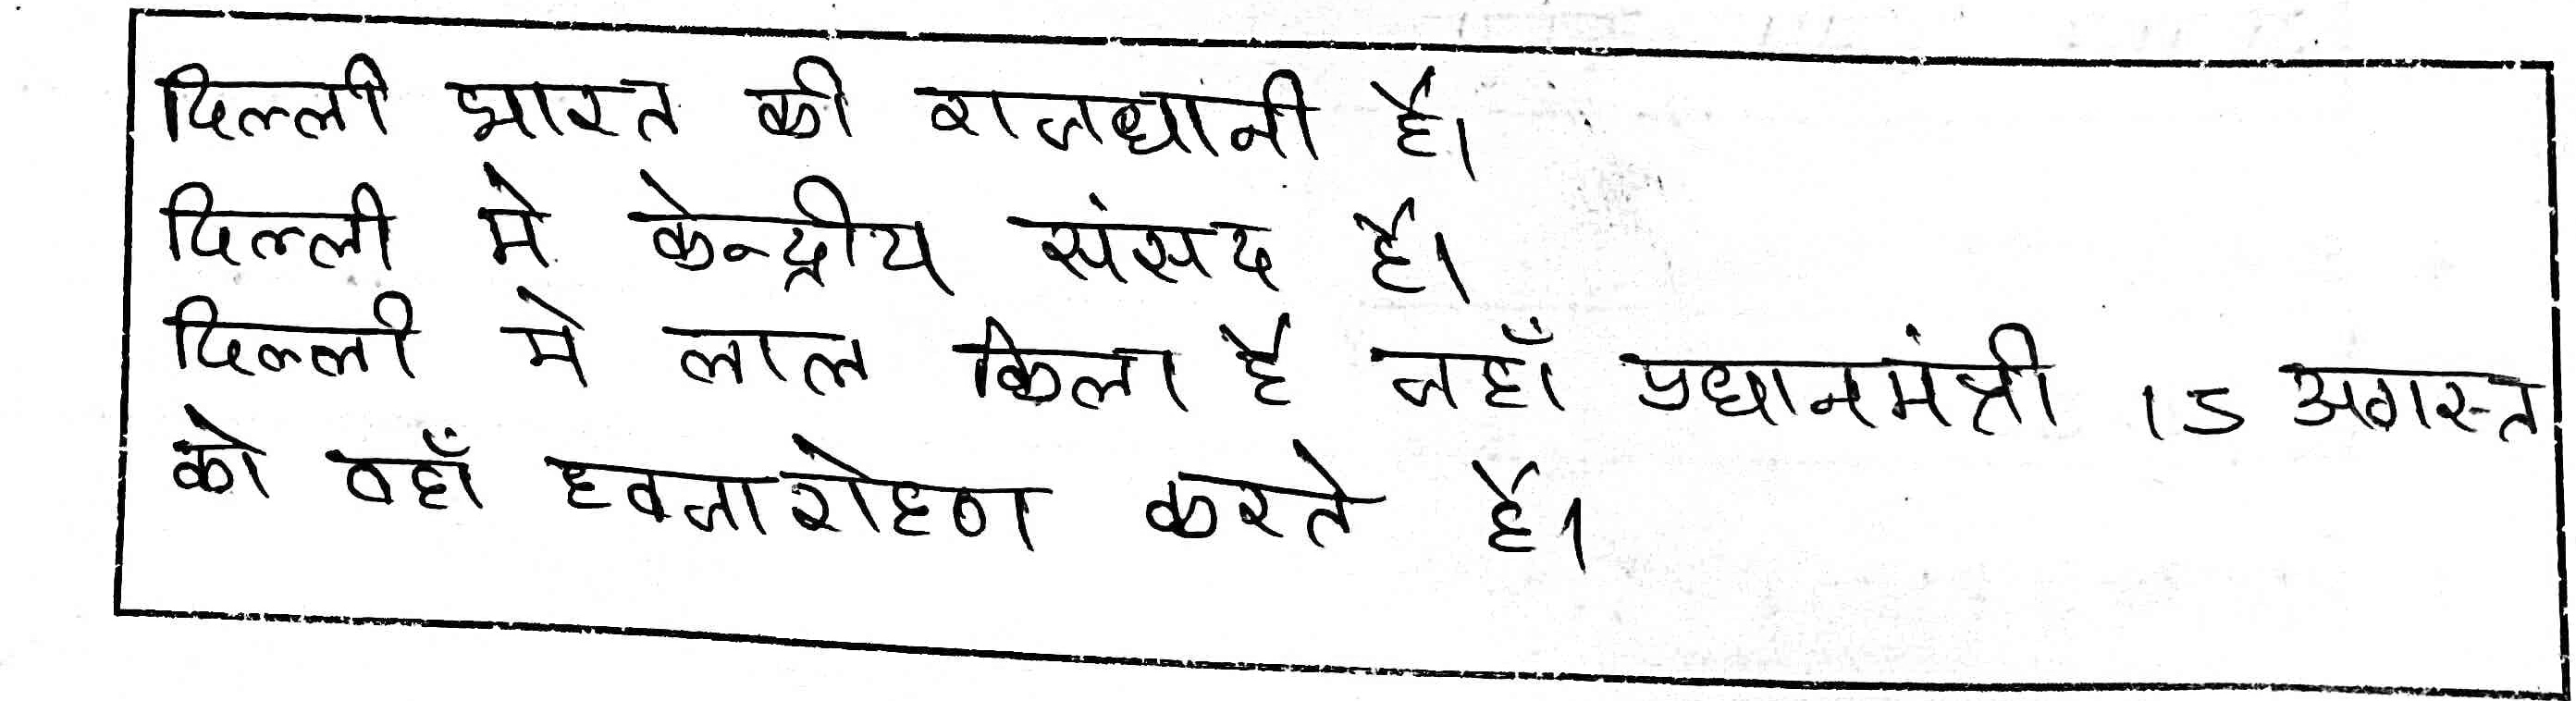 दिल्ली भारत की राजधानी है।
दिल्ली मे केन्द्रीय संसद है।
दिल्ली मे लाल किला है जहाँ प्रधानमंत्री 15 अगस्त
को वहाँ ध्वजारोहण करते है।